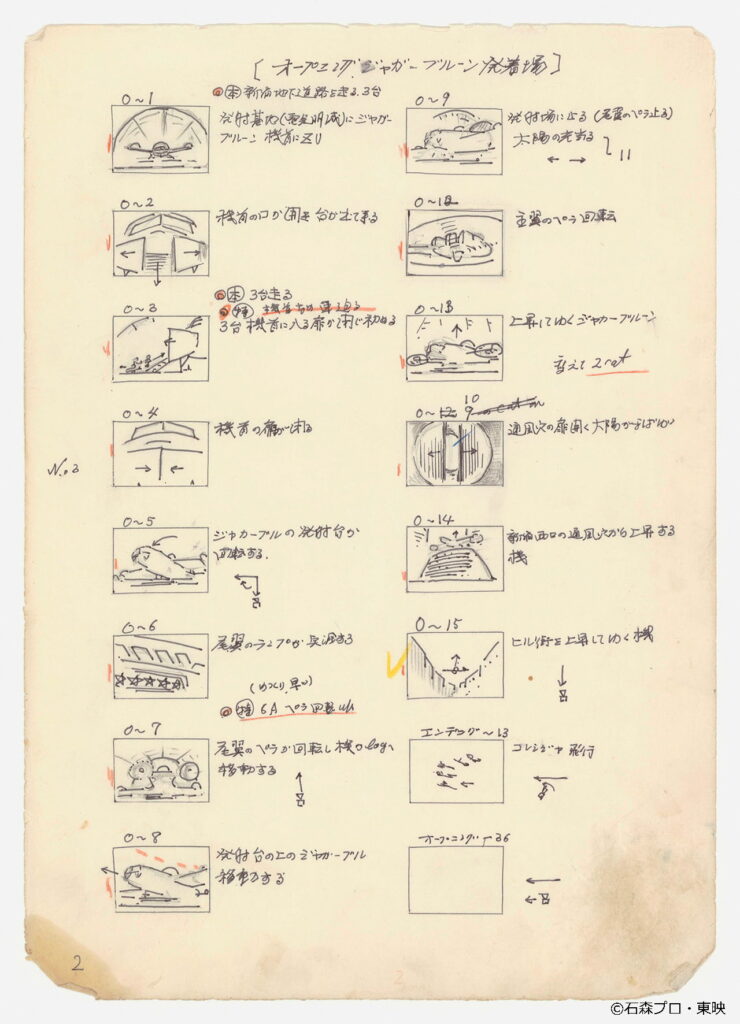 [オープニング.ジャガーブルーン発着場]
0~1
㊍新宿地下道路を走る.3台
発射基内(電光明滅)にジャガー
ブルーン 機首にズリ
0~2
機首の口が開き 台が出て来る
0~3
3台走る
3台 機首に入る扉が閉じ初める
0~4
機首の扉が閉る
No.3
0~5
ジャガーブルの発射台が
回転する.
0~6
尾翼のランプが点滅する
6A ペラ回転
0~7
尾翼のペラが回転し機
移動する
0~8
発射台の上のジャガーブル
移動する
2
0~9
発射場に止る (尾翼のペラ止る)
太陽の光当る
11
0~12
主翼のペラ回転
0~13
上昇してゆくジャガーブルーン
変えて 2cut
10
通風穴の扉開く太陽がまばゆい
0~14
新宿西口の通風穴から上昇する
機
0~15
ビル街を上昇してゆく機
エンデング~13
ゴレンジャ飛行
オープニング~36
©石森プロ・東映